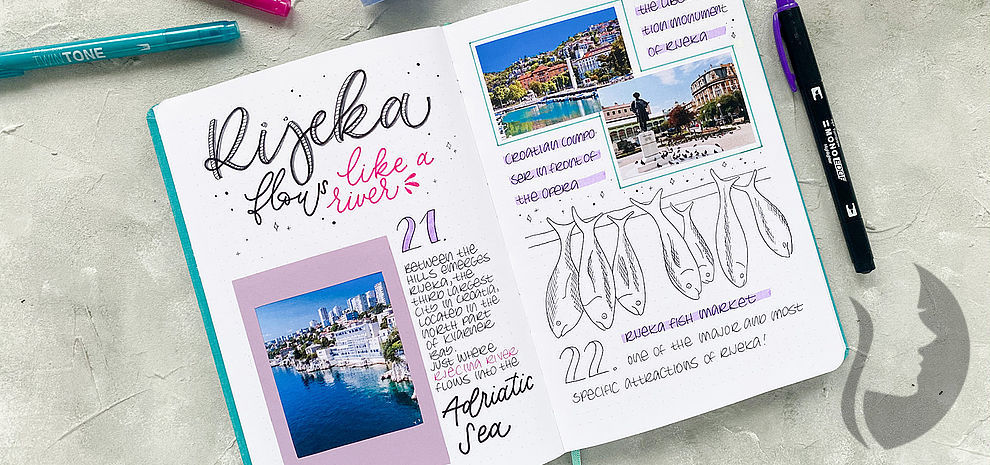 TWINTONE
Rijeka
flows like a
river
21.
BETWEEN THE
HILLS EMERGES
RIJEKA, THE
THIRD LARGEST
CITY IN CROATIA,
LOCATED IN THE
NORTH PART
OF KVARNER
BAY.
JUST WHERE
RJEČINA RIVER
FLOWS INTO THE
Adriatic
Sea
TION MONUMENT
OF RIJEKA
CROATIAN COMPO-
SER IN FRONT OF
THE OPERA
RIJEKA FISH MARKET
22. ONE OF THE MAJOR AND MOST
SPECIFIC ATTRACTIONS OF RIJEKA!
MONO